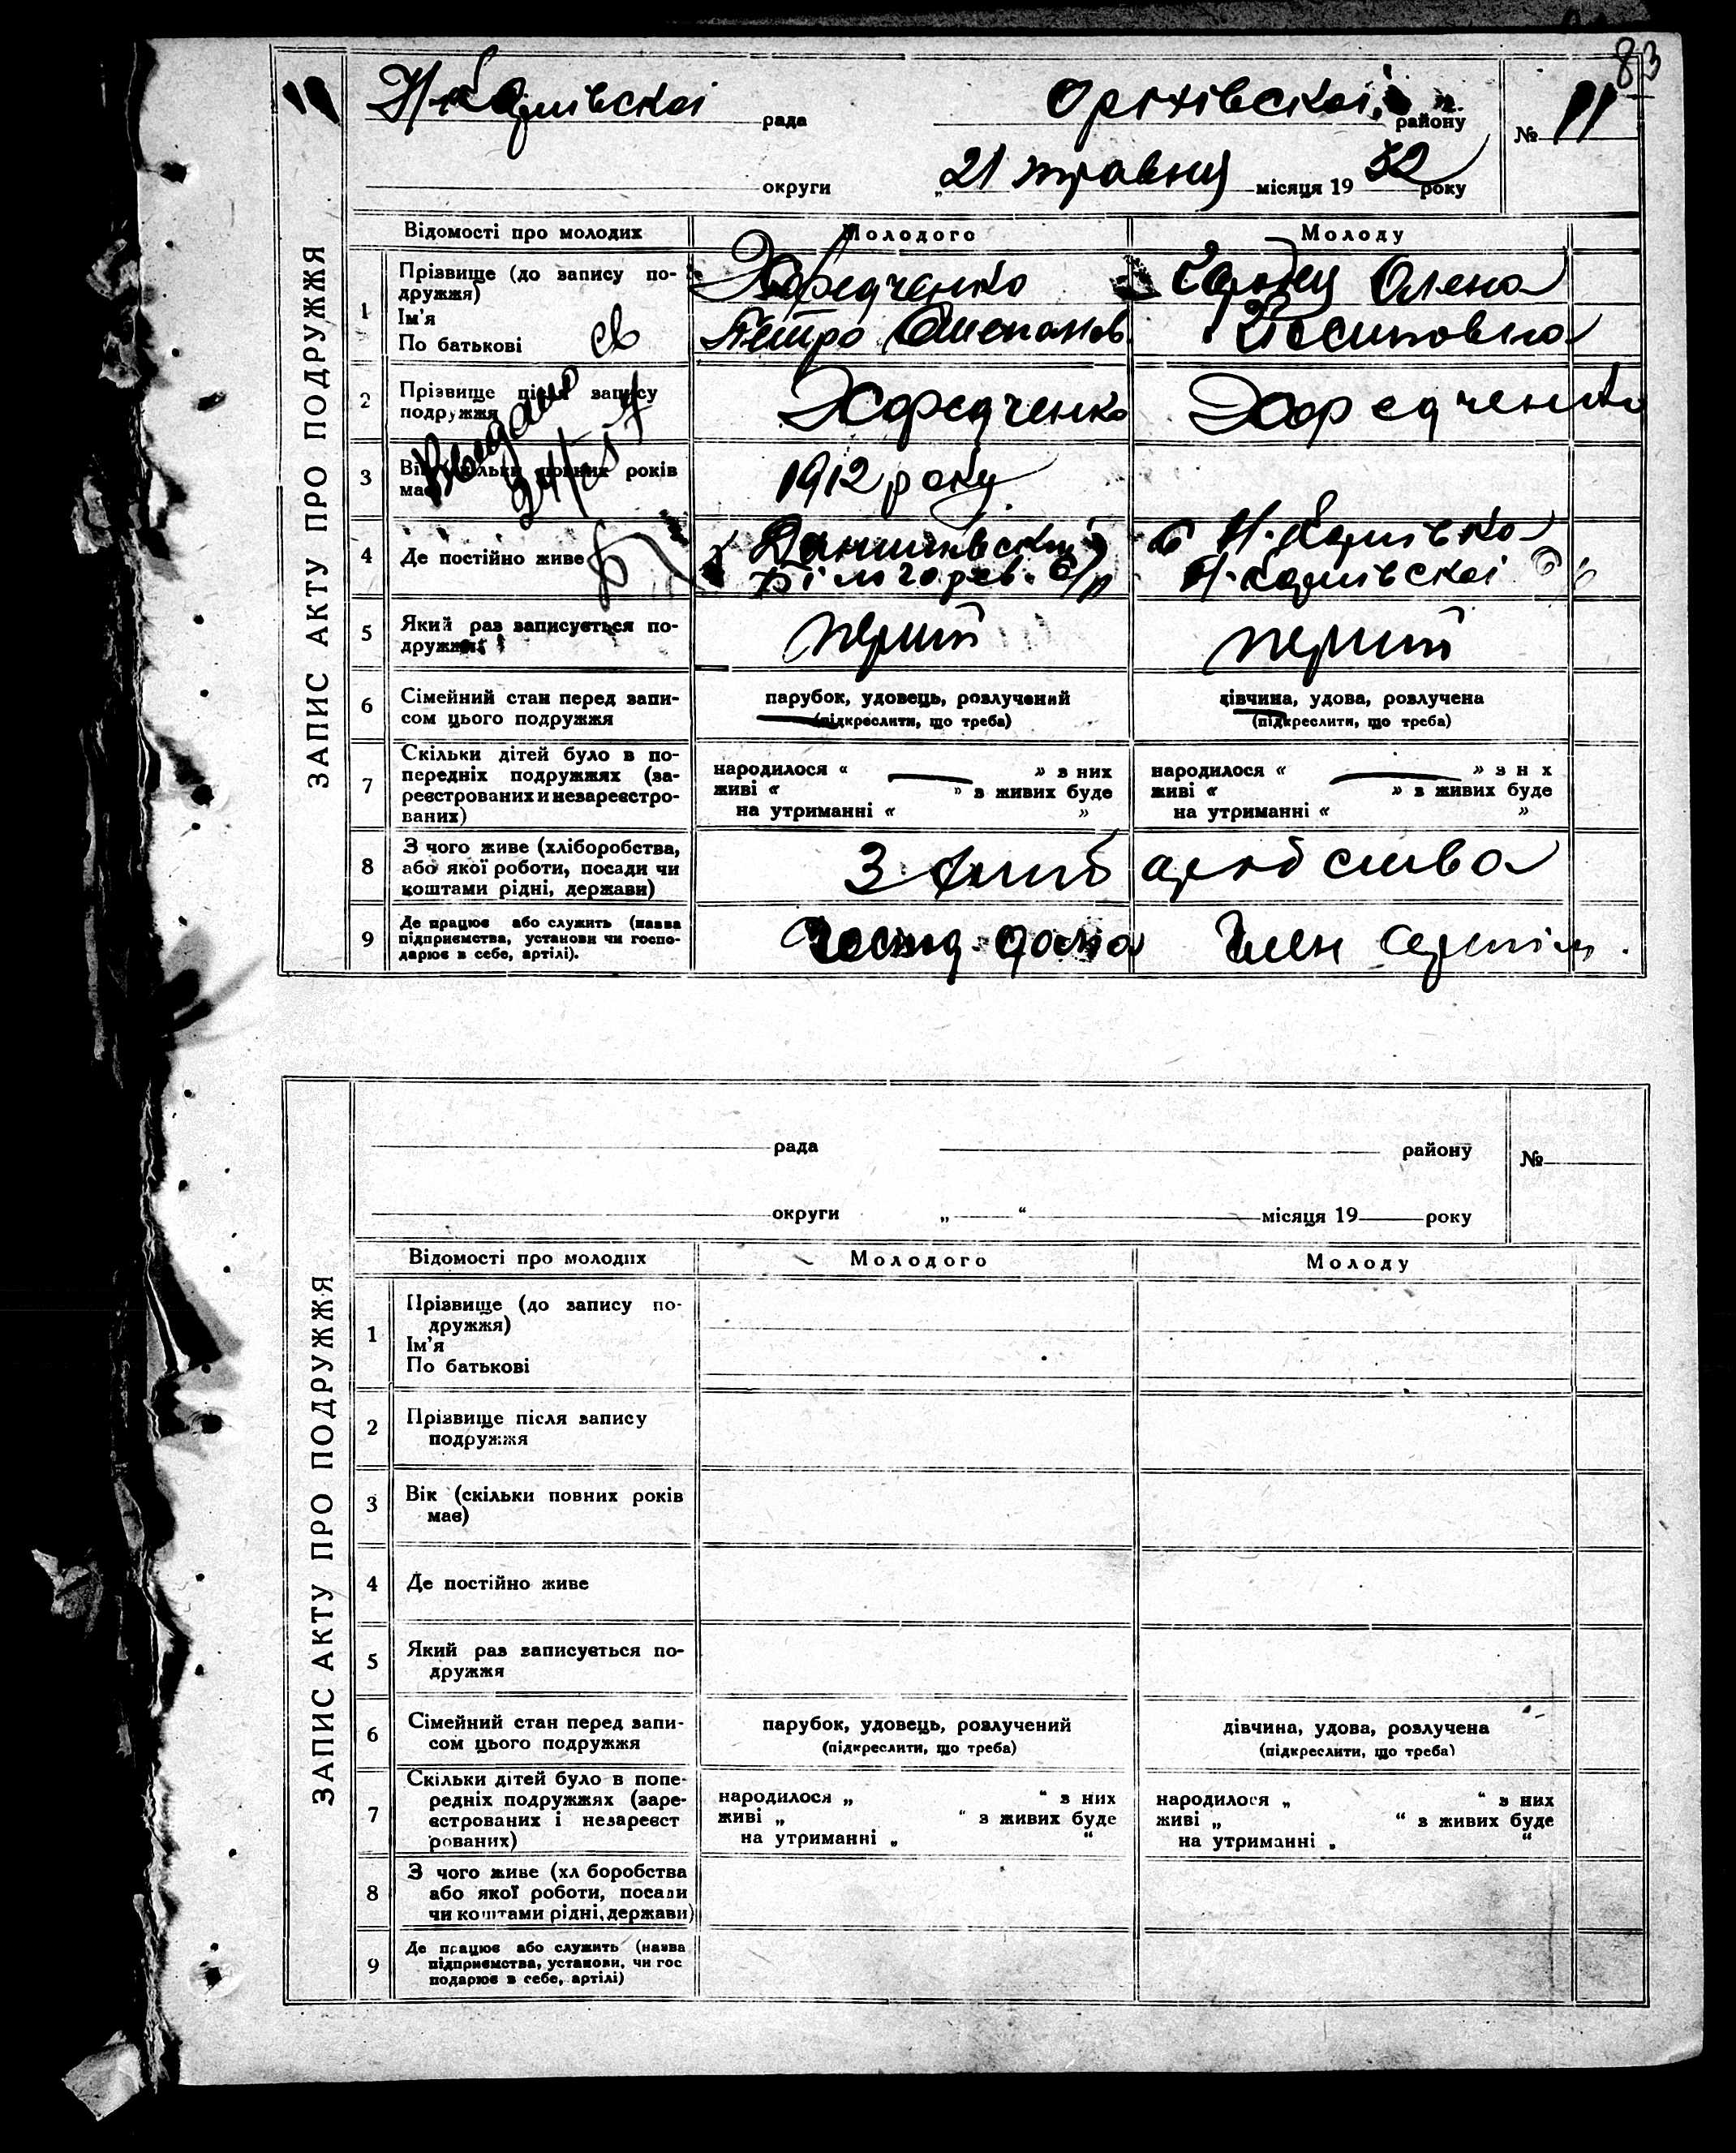 83
рада
Оріхівської району
№ 11
округи „21 травня місяця 1932 року
ЗАПИС АКТУ ПРО ПОДРУЖЖЯ
Відомості про молодих Молодого Молоду
1 Прізвище (до запису по-
дружжя)
Ім'я
По батькові
Олена
Петро Степанов.
Йосиповна
2 Прізвище після запису
подружжя
Видано
3 Вік скільки повних років
має
1912 року
4 Де постійно живе
5 Який раз записується по-
дружжя
перший перший
6 Сімейний стан перед запи-
сом цього подружжя
парубок, удовець, розлучений
(підкреслити, що треба)
дівчина, удова, розлучена
(підкреслити, що треба)
7 Скільки дітей було в по-
передніх подружжях (за-
реєстрованих и незареєстро-
ваних)
народилося « » з них
живі « » з живих буде
на утриманні « »
народилося « » з н х
живі « » з живих буде
на утриманні « »
8 З чого живе (хліборобства,
або якої роботи, посади чи
коштами рідні, держави)
9 Де працює або служить (назва
підприємства, установи чи госпо-
дарює в себе, артілі).
Член
рада району №
округи „ “ місяця 19 року
ЗАПИС АКТУ ПРО ПОДРУЖЖЯ
Відомості про молодих Молодого Молоду
1 Прізвище (до запису по-
дружжя)
Ім'я
По батькові
2 Прізвище після запису
подружжя
3 Вік (скільки повних років
має)
4 Де постійно живе
5 Який раз записується по-
дружжя
6 Сімейний стан перед запи-
сом цього подружжя
парубок, удовець, розлучений
(підкреслити, що треба)
дівчина, удова, розлучена
(підкреслити, що треба)
7 Скільки дітей було в попе-
редніх подружжях (заре-
єстрованих і незареєст
рованих)
народилося „ “ з них
живі „ “ з живих буде
на утриманні „ “
народилося „ “ з них
живі „ “ з живих буде
на утриманні „ “
8 З чого живе (хл боробства
або якої роботи, посади
чи коштами рідні, держави)
9 Де працює або служить (назва
підприємства, установи, чи гос
подарює в себе, артілі)